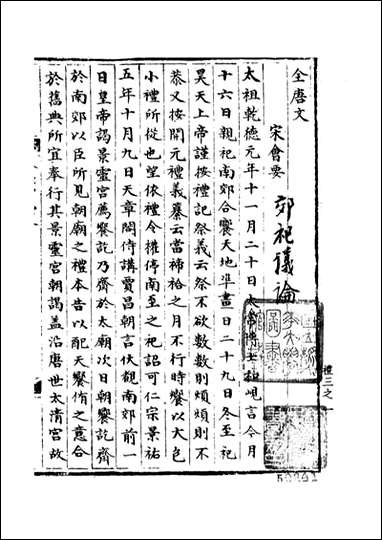 全唐文
宋會要
郊祀議論
太祖乾德元年十一月二十日太常博士和峴言今月
十六日親祀南郊合饗天地準畫日二十九日冬至祀
昊天上帝謹按禮記祭義云祭不欲數數則煩煩則不
恭又按開元禮義纂云當禘祫之月不行時饗以大包
小禮所從也望依禮令權停南至之祀詔可仁宗景祐
五年十月九日天章閣侍講賈昌朝言伏覩南郊前一
日皇帝謁景靈宮薦饗訖乃齋於太廟次日朝饗訖齋
於南郊以臣所見朝廟之禮本告以配天饗侑之意合
於舊典所宜奉行其景靈宮朝謁蓋沿唐世太清宮故
禮三之一